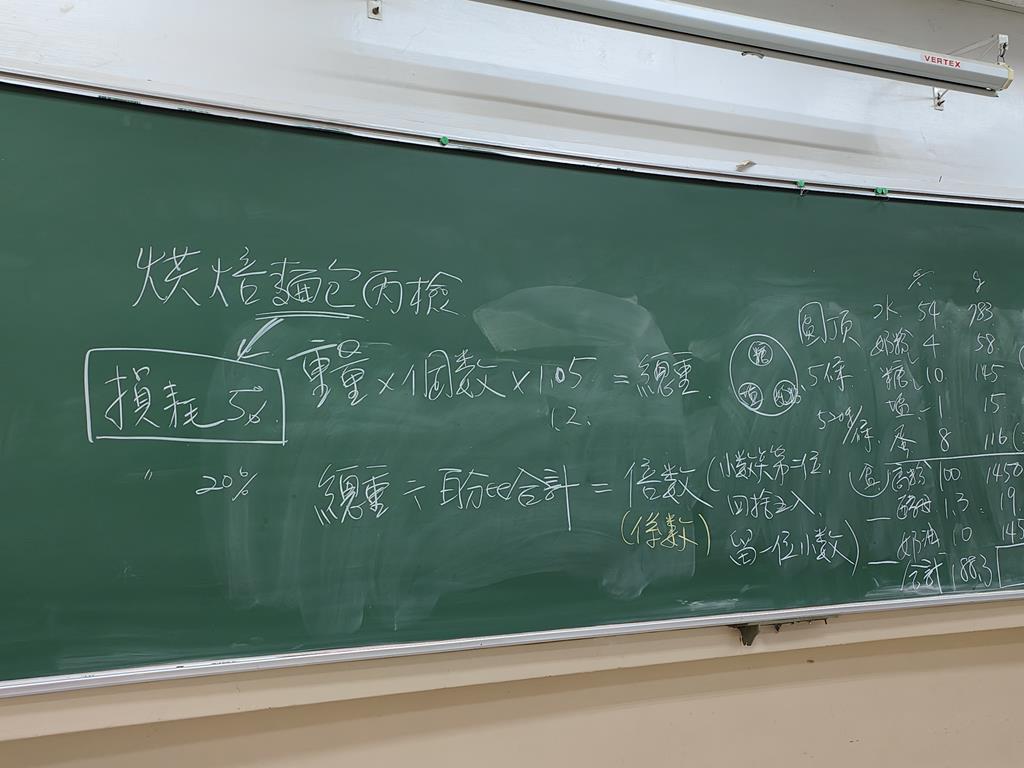 VERTEX
烘焙麵包丙檢
損耗 5%
重量×個數×1.05 = 總重
1.2
〃 20%
總重 ÷ 百分比合計 = 倍數 (小數點第二位,
四捨五入,
(係數)
留一位小數)
圓頂
5條
520g/條
糖
% g
水 54 783
奶粉 4 58
糖 10 145
鹽 1 15
蛋 8 116
高粉 100 1450
酵母 1.3 19
奶油 10 145
合計 188.3